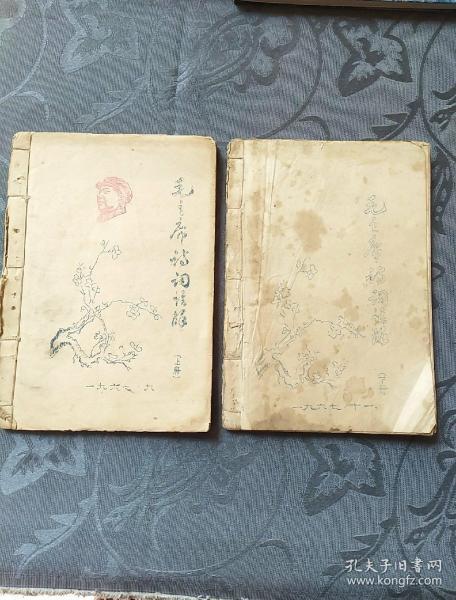 毛主席诗词注解
(上册)
一九六七、六
毛主席诗词注解
(下册)
一九六七 十一
孔夫子旧书网
www.kongfz.com